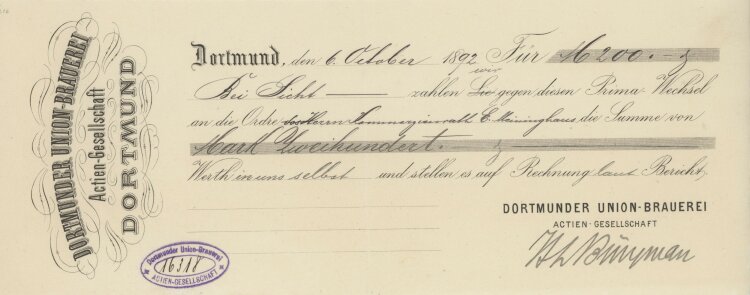 DORTMUNDER UNION-BRAUEREI
Actien-Gesellschaft
DORTMUND
Dortmund, den 6. October 1892 Für M 200.-
wir
Bei Sicht zahlen Sie gegen diesen Prima-Wechsel
an die Ordre des Herrn Kommerzienrath E. Meininghaus die Summe von
Mark Zweihundert.
Werth in uns selbst und stellen es auf Rechnung laut Bericht.
DORTMUNDER UNION-BRAUEREI
ACTIEN-GESELLSCHAFT
Dortmunder Union-Brauerei
16318
ACTIEN-GESELLSCHAFT